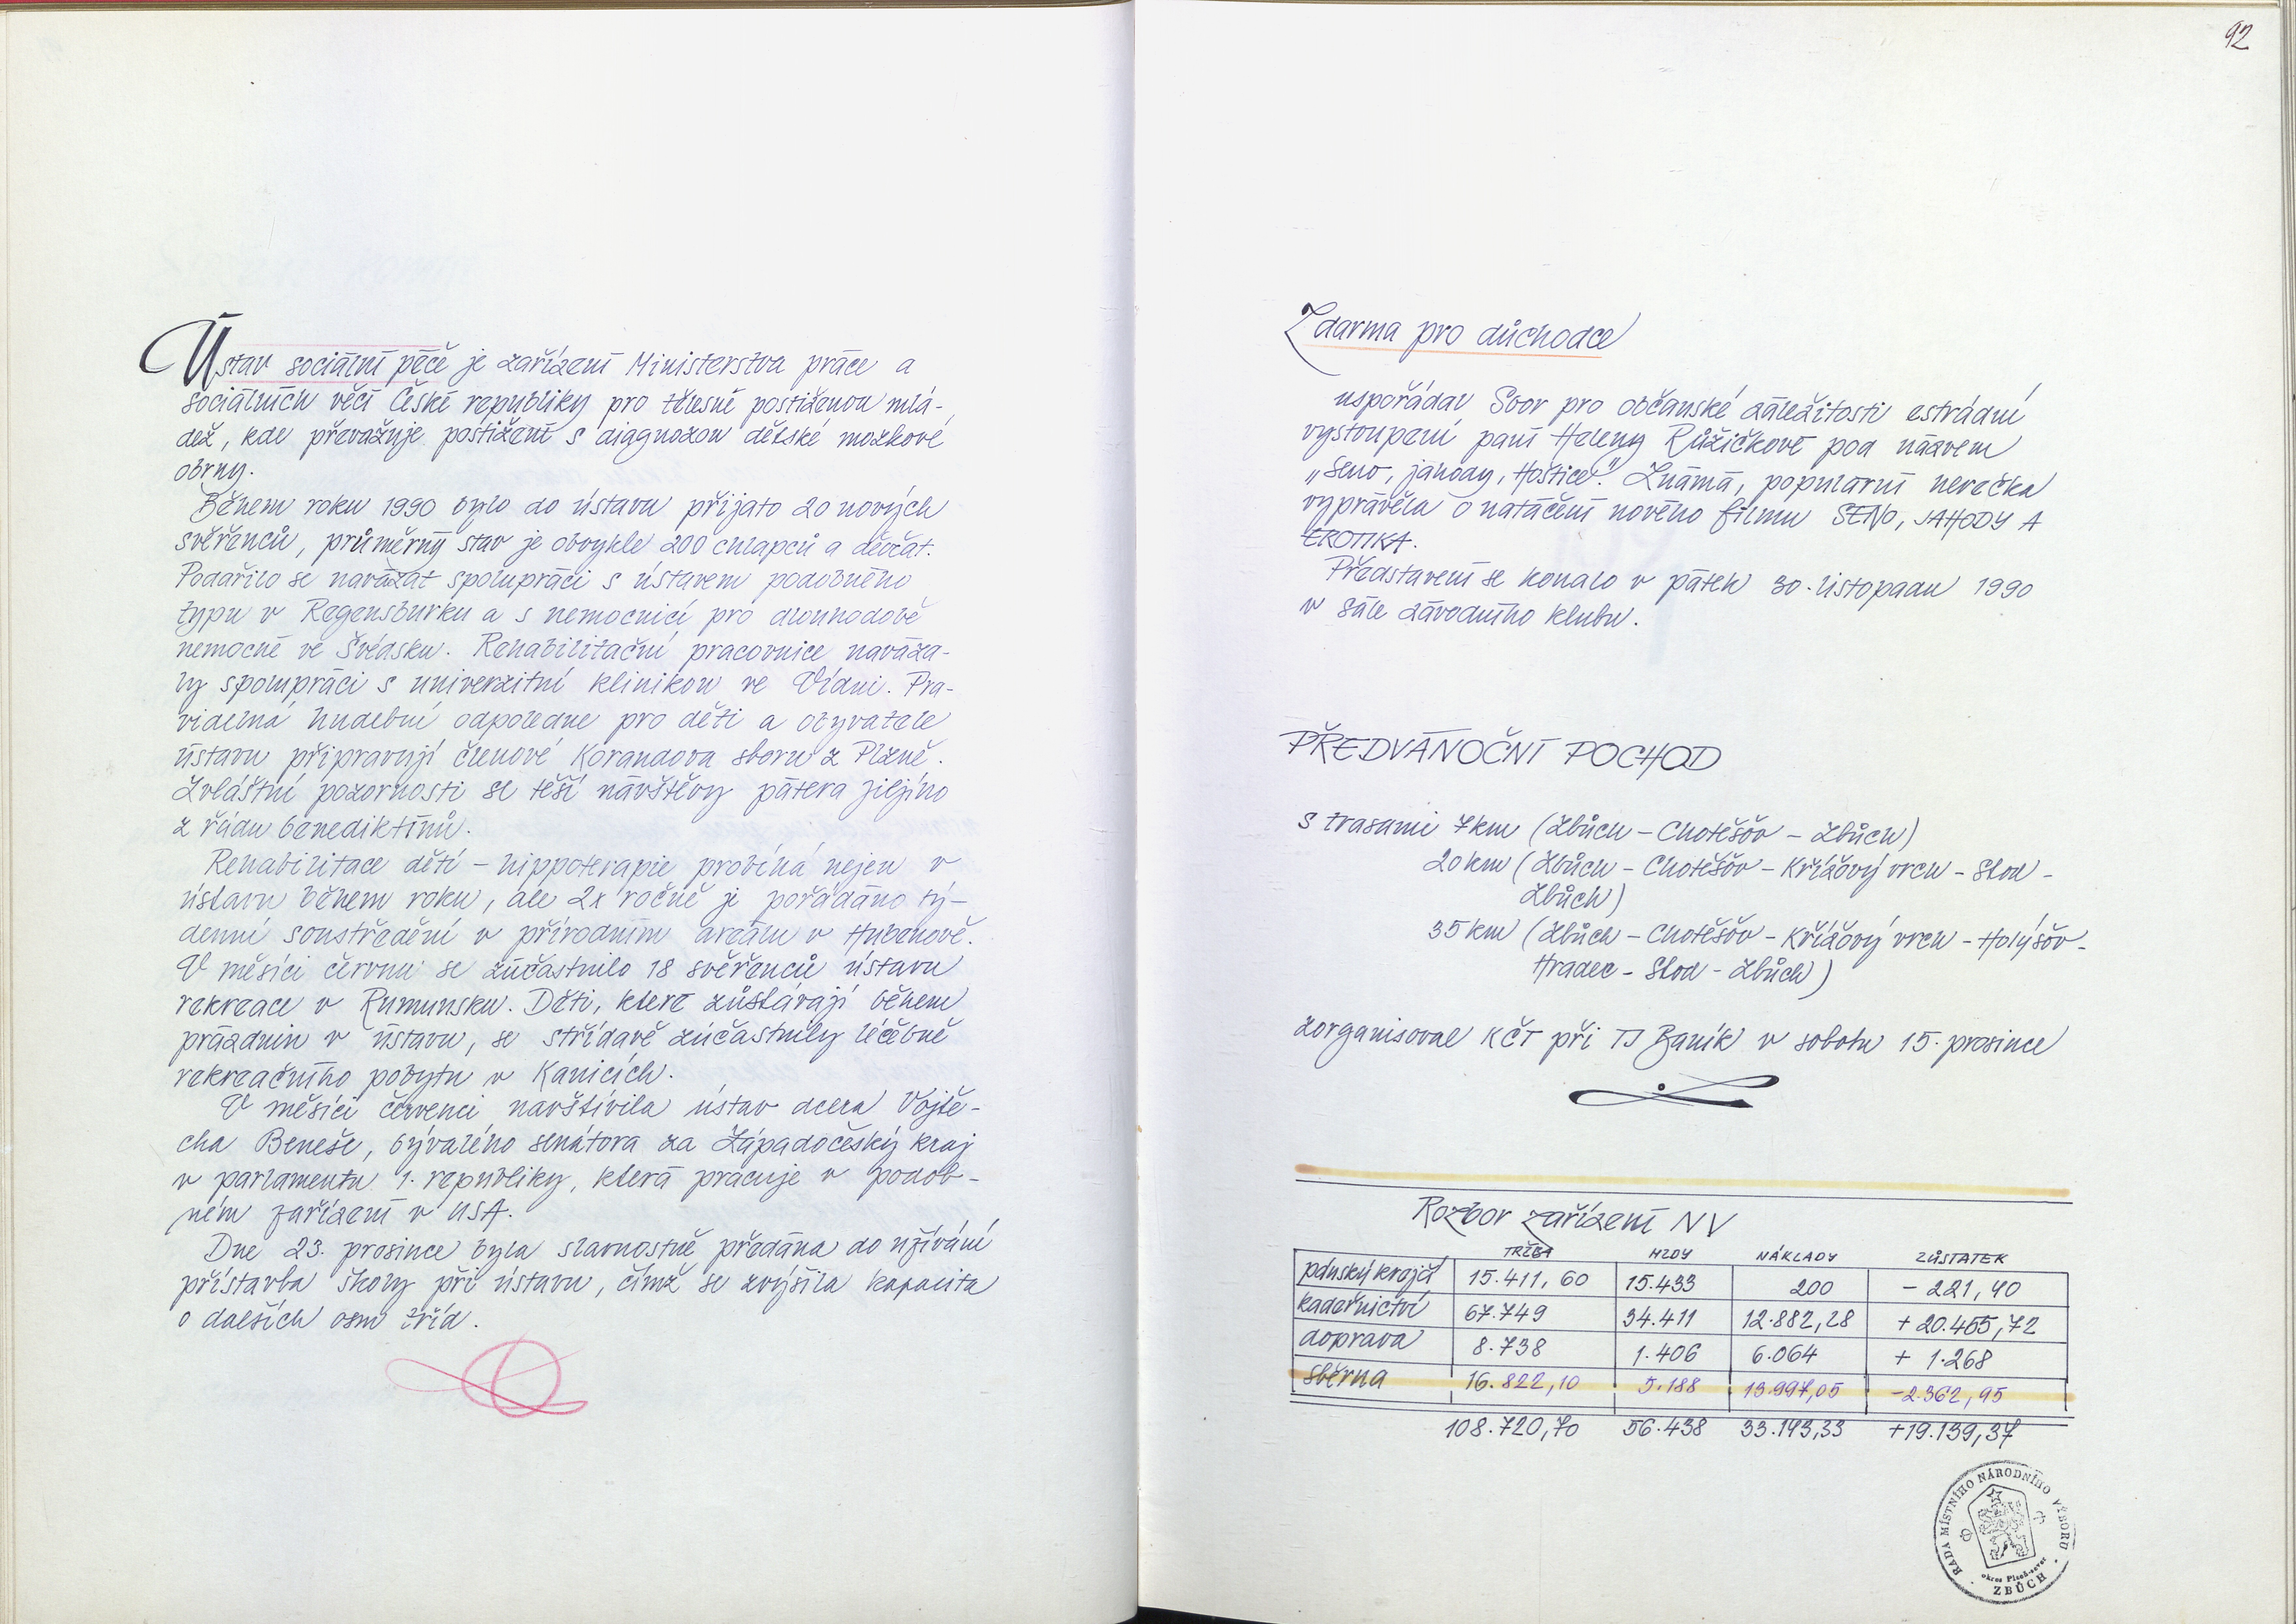 Ústav sociální péče je zařízení Ministerstva práce a
sociálních věcí České republiky pro tělesně postiženou mlá-
dež, kde převažuje postižení s diagnozou dětské mozkové
obrny.
Během roku 1990 bylo do ústavu přijato 20 nových
svěřenců, průměrný stav je obvykle 200 chlapců a děvčat.
Podařilo se navázat spolupráci s ústavem podobného
typu v Regensburku a s nemocnicí pro dlouhodobě
nemocné ve Švédsku. Rehabilitační pracovnice naváza-
ly spolupráci s univerzitní klinikou ve Vídni. Pra-
videlná hudební odpoledne pro děti a obyvatele
ústavu připravují členové Korandova sboru z Plzně.
Zvláštní pozornosti se těší návštěvy pátera Jiljího
z řádu benediktínů.
Rehabilitace dětí – hippoterapie probíhá nejen v
ústavu během roku, ale 2x ročně je pořádáno tý-
denní soustředění v přírodním areálu v Hubenově.
V měsíci červnu se zúčastnilo 18 svěřenců ústavu
rekreace v Rumunsku. Děti, které zůstávají během
prázdnin v ústavu, se střídavě zúčastnily léčebně
rekreačního pobytu v Kanicích.
V měsíci červenci navštívila ústav dcera Vojtě-
cha Beneše, bývalého senátora za Západočeský kraj
v parlamentu 1. republiky, která pracuje v podob-
ném zařízení v USA.
Dne 23. prosince byla slavnostně předána do užívání
přístavba školy při ústavu, čímž se zvýšila kapacita
o dalších osm tříd.
92
Zdarma pro důchodce
uspořádal Sbor pro občanské záležitosti estrádní
vystoupení paní Heleny Růžičkové pod názvem
„Seno, jahody, Hoštice". Známá, populární herečka
vyprávěla o natáčení nového filmu SENO, JAHODY A
EROTIKA.
Představení se konalo v pátek 30. listopadu 1990
v sále závodního klubu.
PŘEDVÁNOČNÍ POCHOD
s trasami 7km (Zbůch – Chotěšov – Zbůch)
20km (Zbůch – Chotěšov – Křížový vrch – Stod –
Zbůch)
35km (Zbůch – Chotěšov – Křížový vrch – Holýšov –
Hradec – Stod – Zbůch)
zorganisoval KČT při TJ Baník v sobotu 15. prosince
Rozbor zařízení NV
TRŽBA MZDY NÁKLADY ZŮSTATEK
pánský krejčí 15.411,60 15.433 200 - 221,40
kadeřnictví 67.749 34.411 12.882,28 + 20.455,72
doprava 8.738 1.406 6.064 + 1.268
sběrna 16.822,10 5.188 13.997,05 -2.362,95
108.720,70 56.438 33.143,33 +19.139,37
RADA MÍSTNÍHO NÁRODNÍHO VÝBORU
okres Plzeň-sever
ZBŮCH